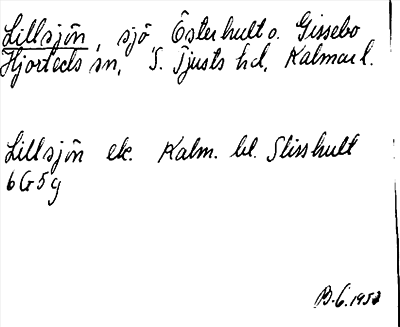 Lillsjön, sjö Österhult o. Gissebo
Hjorteds sn, S. Tjusts hd, Kalmar l.
Lillsjön ek. Kalm. bl. Slisshult
6G5g
B. G. 1952